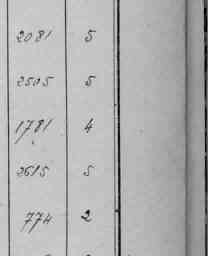 2081 5
2505 5
1781 4
2615 5
774 2